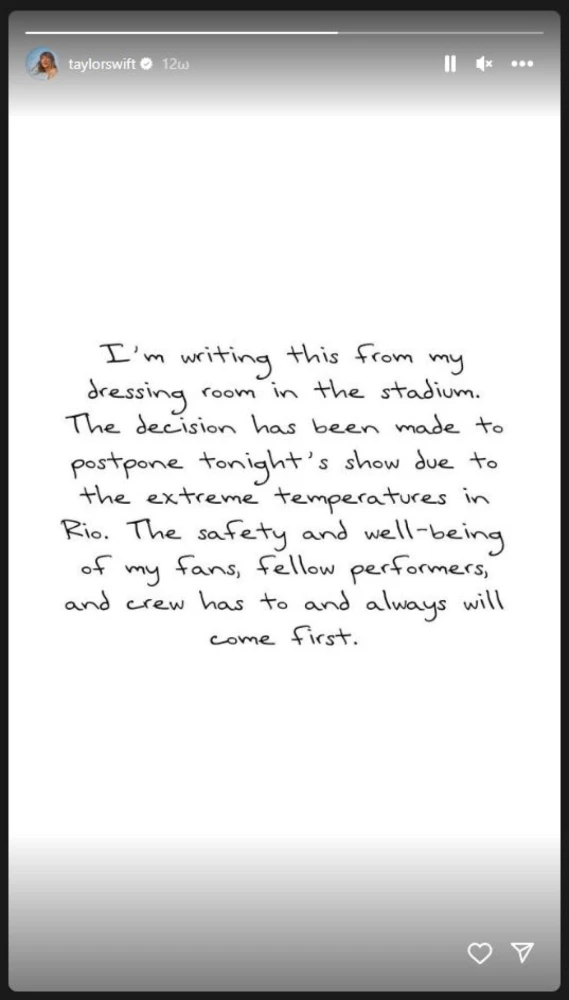 taylorswift 12ω
I'm writing this from my
dressing room in the stadium.
The decision has been made to
postpone tonight's show due to
the extreme temperatures in
Rio. The safety and well-being
of my fans, fellow performers,
and crew has to and always will
come first.